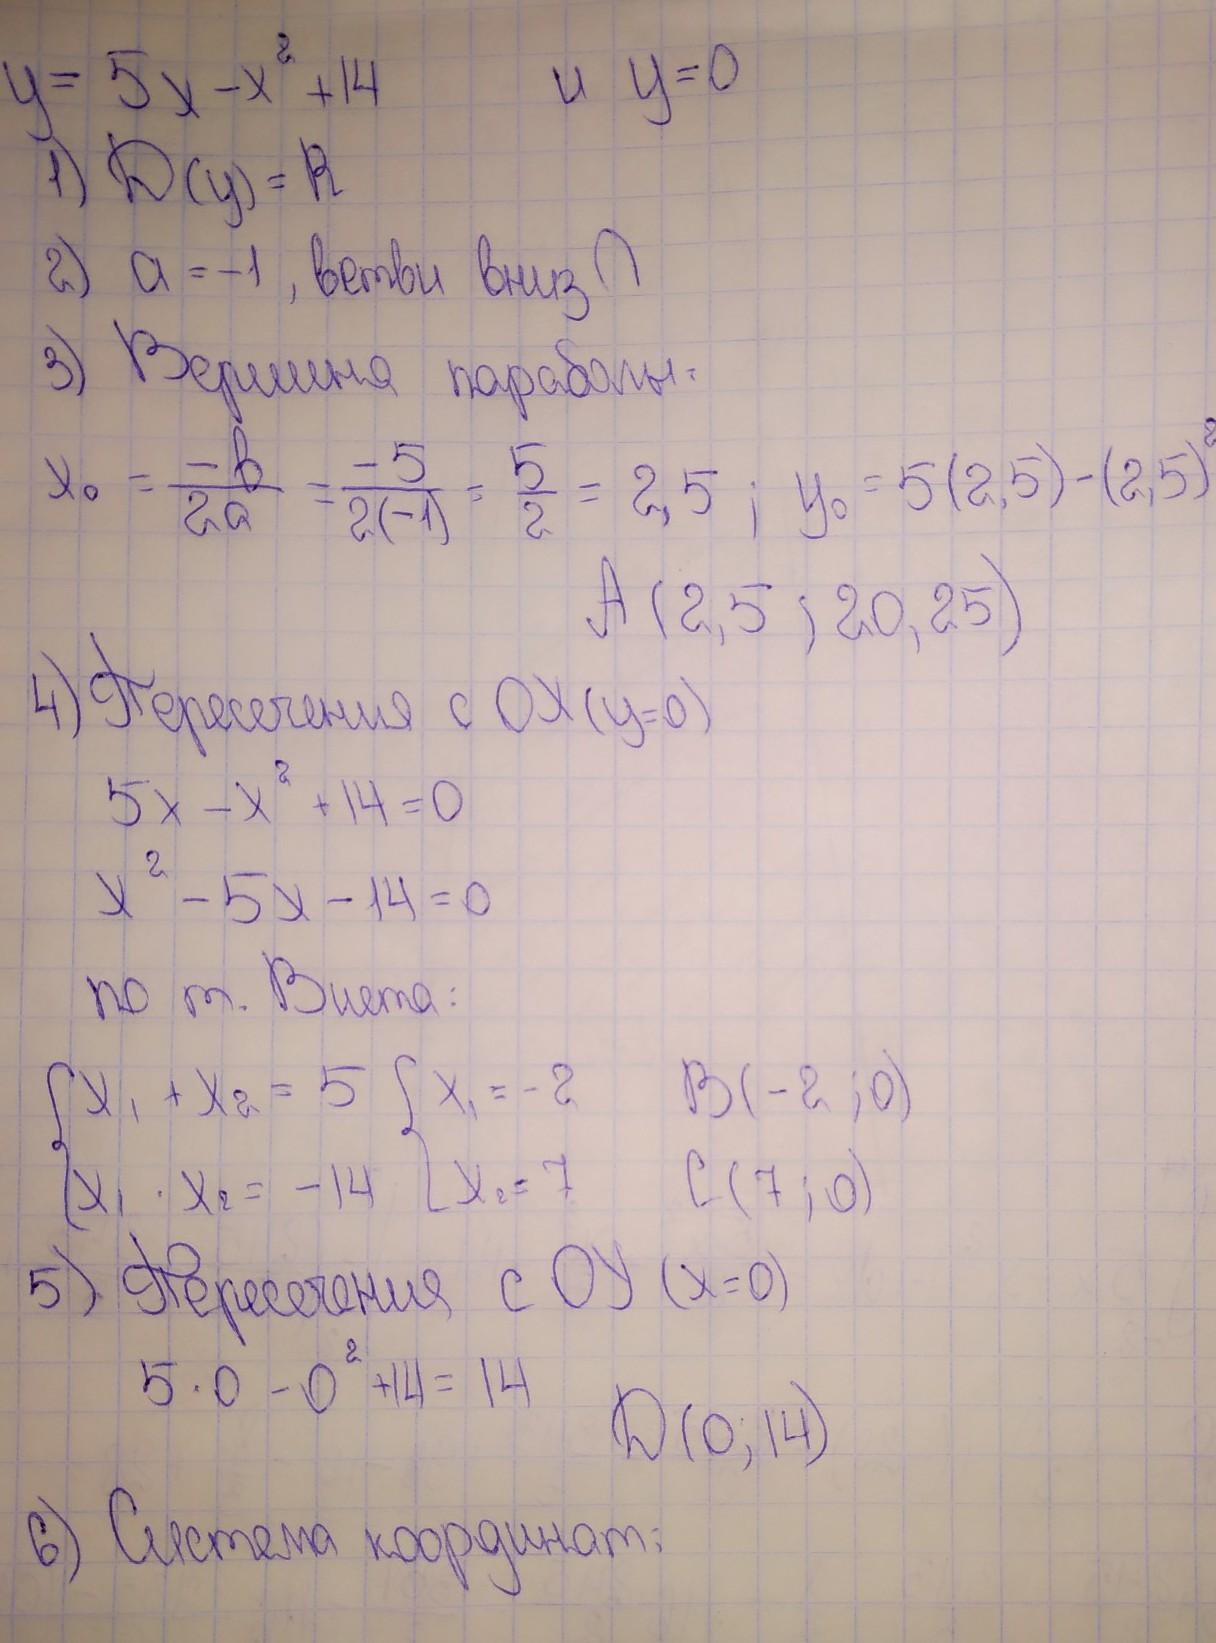 y = 5x - x² + 14 и y = 0
1) D(y) = R
2) a = -1, ветви вниз ∩
3) Вершина параболы:
x₀ = -b/2a = -5/2(-1) = 5/2 = 2,5 ; y₀ = 5(2,5) - (2,5)²
A (2,5 ; 20,25)
4) Пересечения с OX (y=0)
5x - x² + 14 = 0
x² - 5x - 14 = 0
по т. Виета:
{ x₁ + x₂ = 5 { x₁ = -2 B(-2 ; 0)
{ x₁ · x₂ = -14 { x₂ = 7 C(7 ; 0)
5) Пересечения с OY (x=0)
5·0 - 0² + 14 = 14
D(0; 14)
6) Система координат: